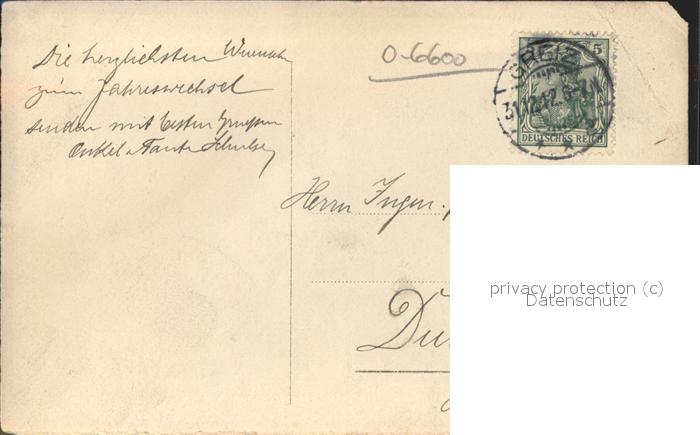 Die herzlichsten Wünsche
zum Jahreswechsel
senden mit besten Grüssen
Onkel u. Tante Schulze
0-6600
GREIZ
5
31.12.12. 6-7N
DEUTSCHES REICH
Herrn Ingen.
Du
privacy protection (c)
Datenschutz